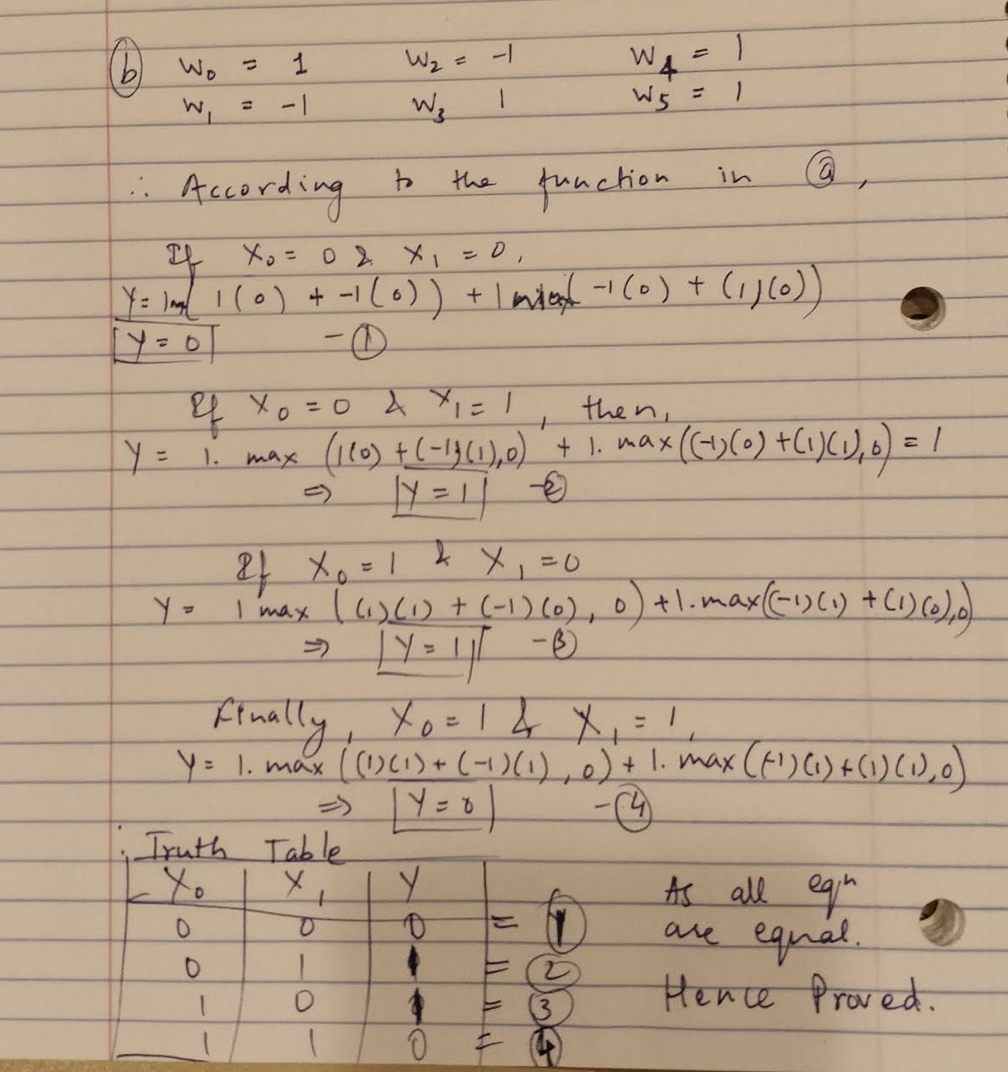 ⓑ W₀ = 1 W₂ = -1 W₄ = 1
W₁ = -1 W₃ 1 W₅ = 1
∴ According to the function in ⓐ,
If X₀ = 0 & X₁ = 0,
Y = 1 ( 1(0) + -1(0)) + 1 ( -1(0) + (1)(0))
Y = 0 - ①
If X₀ = 0 & X₁ = 1, then,
Y = 1. max (1(0) + (-1)(1),0) + 1. max((-1)(0) + (1)(1),0) = 1
⇒ Y = 1 - ②
If X₀ = 1 & X₁ = 0
Y = 1 max ((1)(1) + (-1)(0), 0) + 1. max((-1)(1) + (1)(0),0)
⇒ Y = 1 - ③
Finally, X₀ = 1 & X₁ = 1,
Y = 1. max ((1)(1) + (-1)(1), 0) + 1. max((-1)(1) + (1)(1),0)
⇒ Y = 0 - ④
∴ Truth Table
X₀ X₁ Y
0 0 0 = ①
0 1 1 = ②
1 0 1 = ③
1 1 0 = ④
As all eqn
are equal.
Hence Proved.